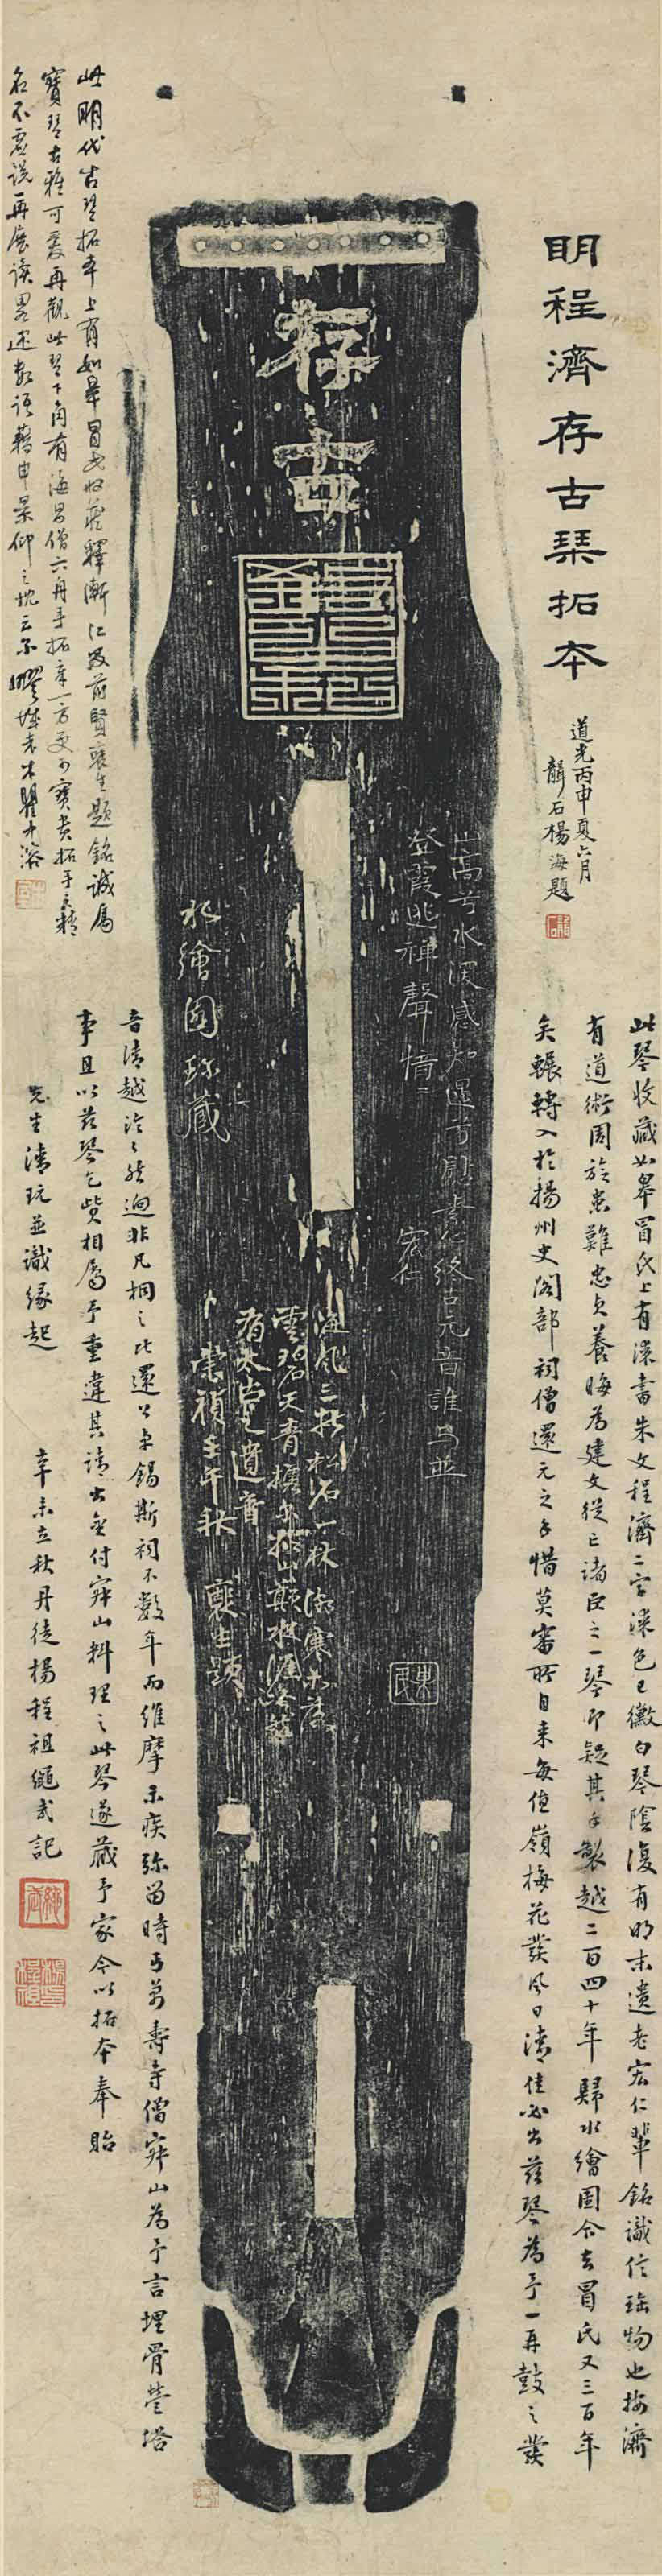 明程濟存古琴拓本
道光丙申夏六月
聾石楊海題
此琴收藏如皋冒氏上有漆書朱文程濟二字漆色已黴白琴陰復有明末遺老宏仁輩銘識信瑰物也按濟
有道術周旋患難忠貞養晦為建文從亡諸臣之一琴即疑其手製越二百四十年歸水繪園今去冒氏又三百年
矣輾轉入於揚州史閣部祠僧還元之手惜莫審所自來每值嶺梅花發風日清佳必出茲琴為予一再鼓之發
音清越泠泠然迥非凡桐之比還公卓錫斯祠不數年而維摩示疾弥留時丐萬壽寺僧寂山為予言埋骨瑩塔
事且以茲琴乞貲相屬予重違其請出金付寂山料理之此琴遂藏予家今以拓本奉貽
先生清玩並識緣起
辛未立秋丹徒楊程祖繩武記
此明代古琴拓本上有如皋冒氏收藏釋漸江及前賢襄生題銘誠屬
寶琴古雅可愛再觀此琴下角有海昌僧六舟手拓章一方更可寶貴拓手之精
名不虛說再展讀畧述數語藉申景仰之忱云尔
存古
水繪園珍藏
山高兮水深感知遇兮慰素心終古元音誰與並
登霞逃禪聲愔愔
宏仁
海風三折松石一林
崇禎壬午秋 襄生題